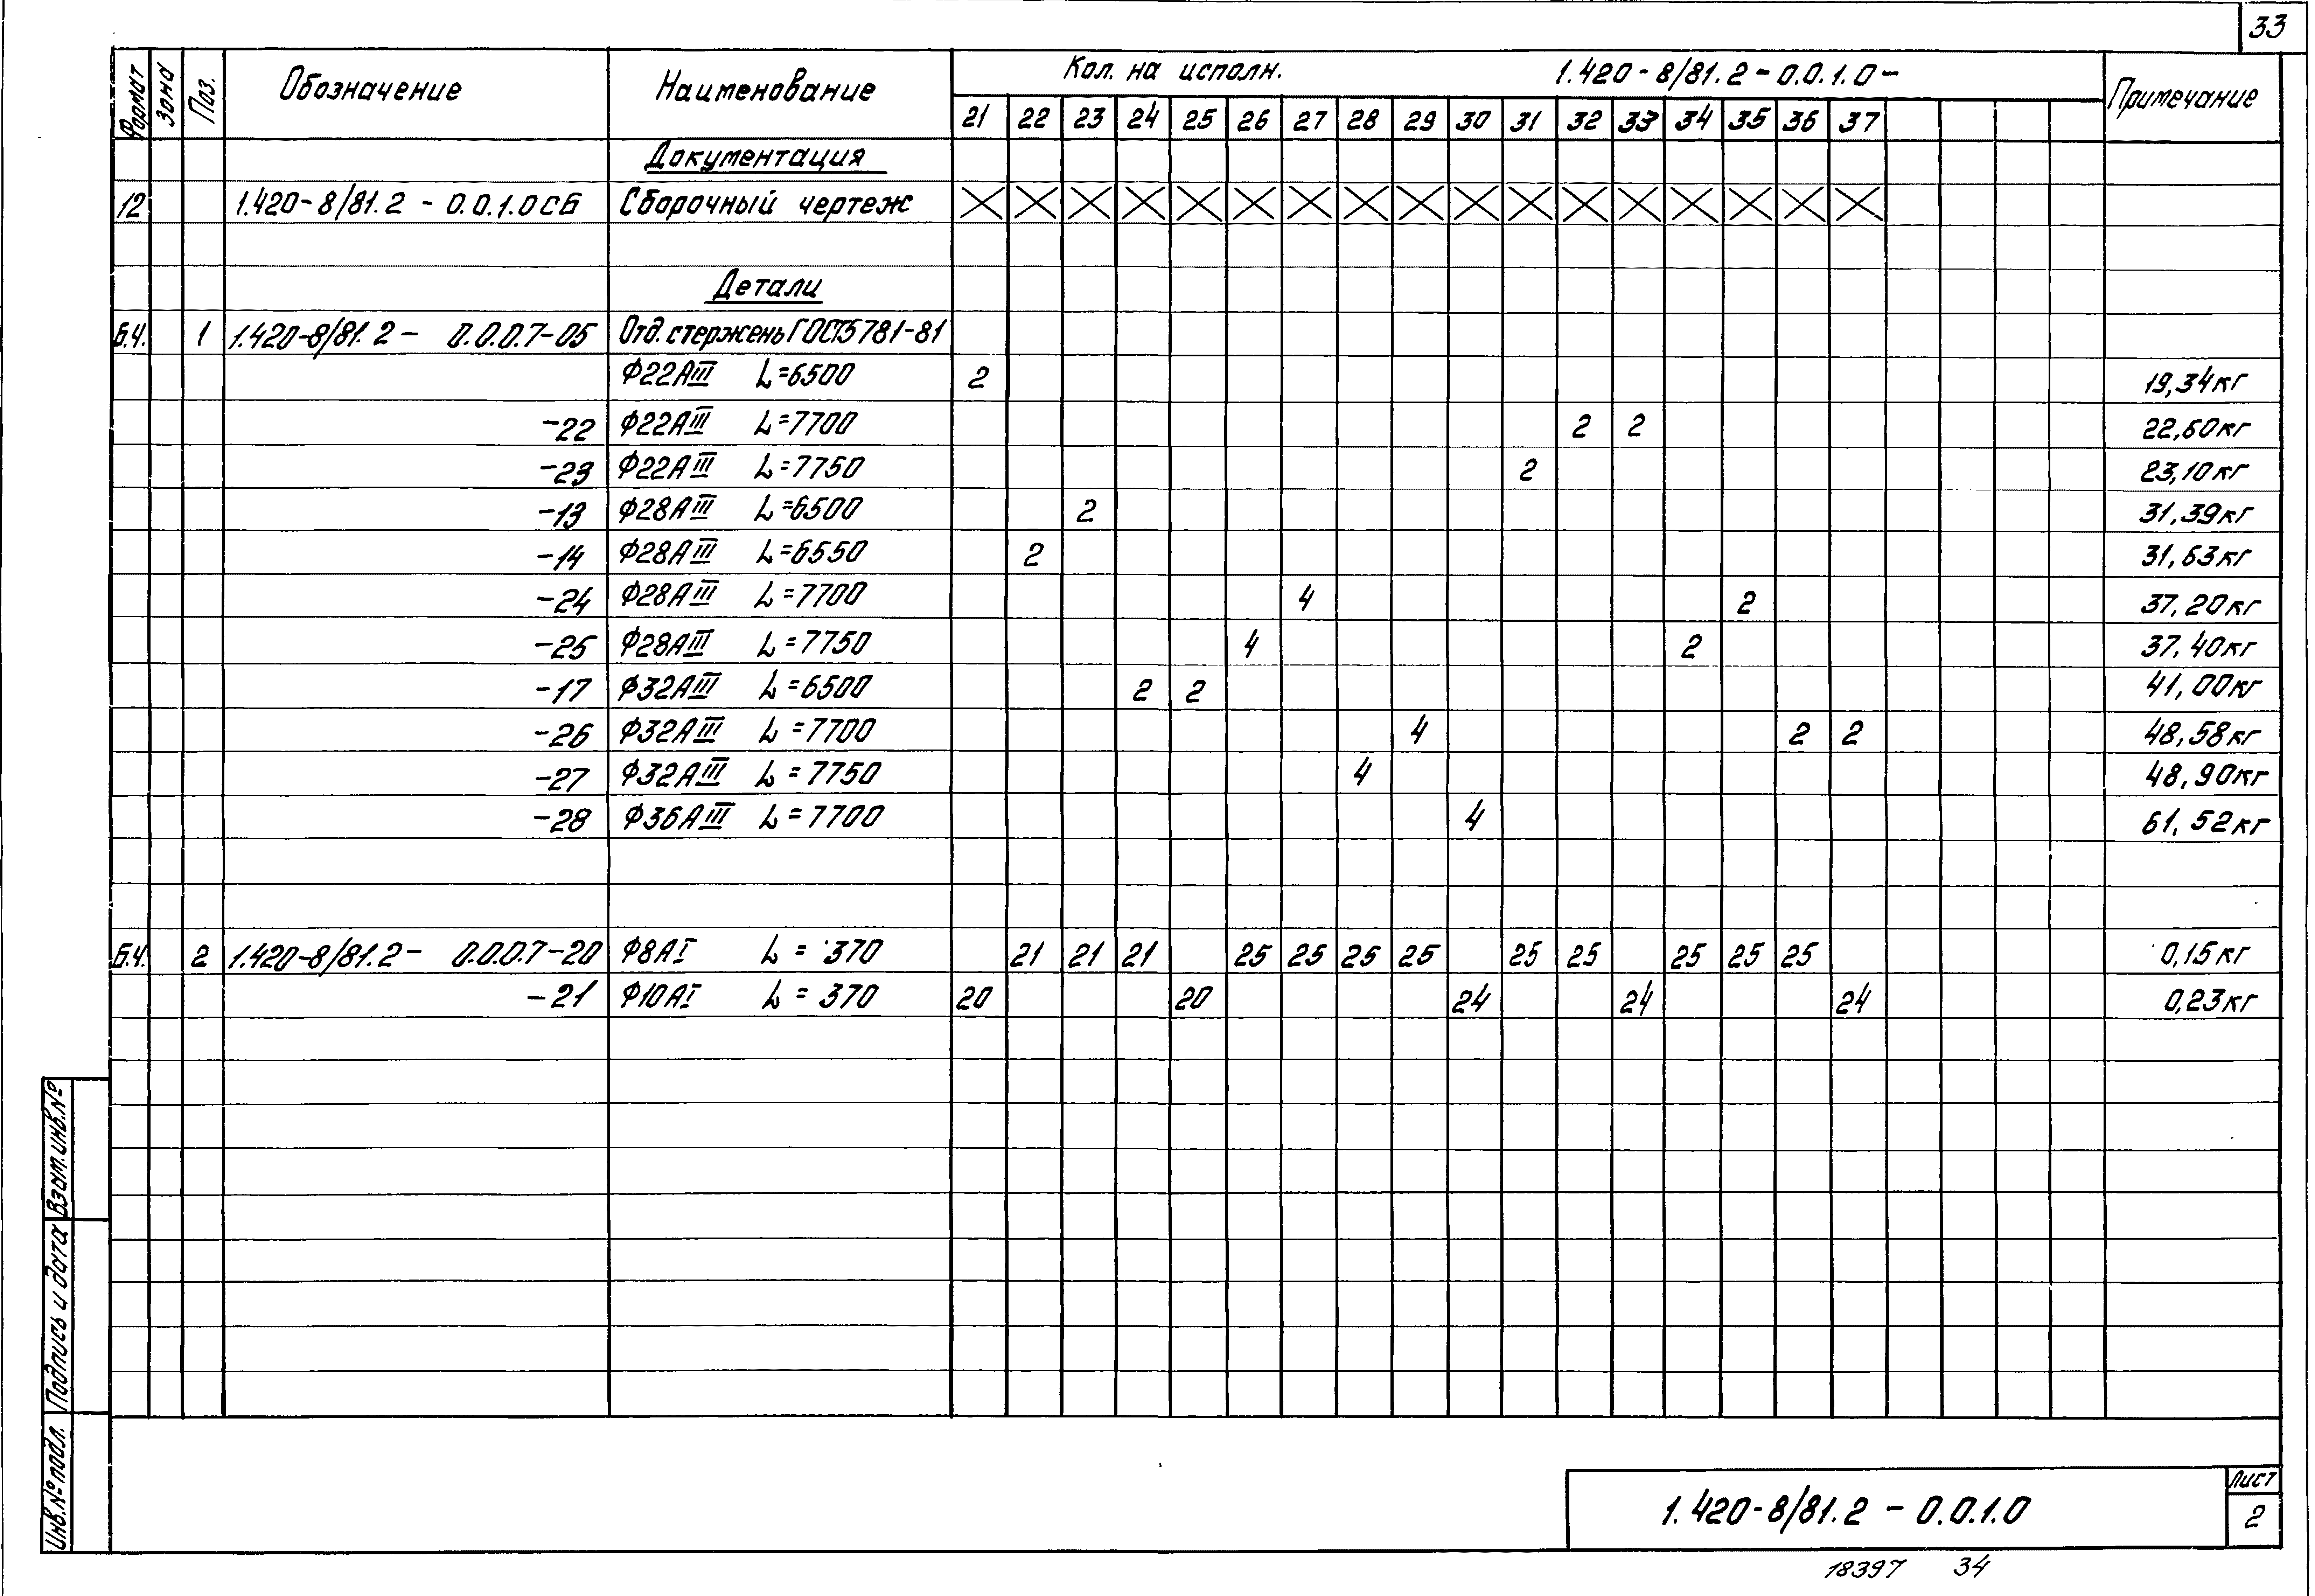 33
Формат Зона Поз. Обозначение Наименование Кол. на исполн. 1.420-8/81.2-0.0.1.0- Примечание
21 22 23 24 25 26 27 28 29 30 31 32 33 34 35 36 37
Документация
12 1.420-8/81.2-0.0.1.0СБ Сборочный чертеж
Детали
Б.Ч. 1 1.420-8/81.2- 0.0.0.7-05 Отд. стержень ГОСТ5781-81
Ф22АIII L=6500 2 19,34кг
-22 Ф22АIII L=7700 2 2 22,60кг
-23 Ф22АIII L=7750 2 23,10кг
-13 Ф28АIII L=6500 2 31,39кг
-14 Ф28АIII L=6550 2 31,63кг
-24 Ф28АIII L=7700 4 2 37,20кг
-25 Ф28АIII L=7750 4 2 37,40кг
-17 Ф32АIII L=6500 2 2 41,00кг
-26 Ф32АIII L=7700 4 2 2 48,58кг
-27 Ф32АIII L=7750 4 48,90кг
-28 Ф36АIII L=7700 4 61,52кг
Б.Ч. 2 1.420-8/81.2- 0.0.0.7-20 Ф8АI L=370 21 21 21 25 25 25 25 25 25 25 25 25 0,15кг
-21 Ф10АI L=370 20 20 24 24 24 0,23кг
Взам.инв.№
Подпись и дата
Инв.№ подл.
1.420-8/81.2-0.0.1.0
Лист
2
18397 34